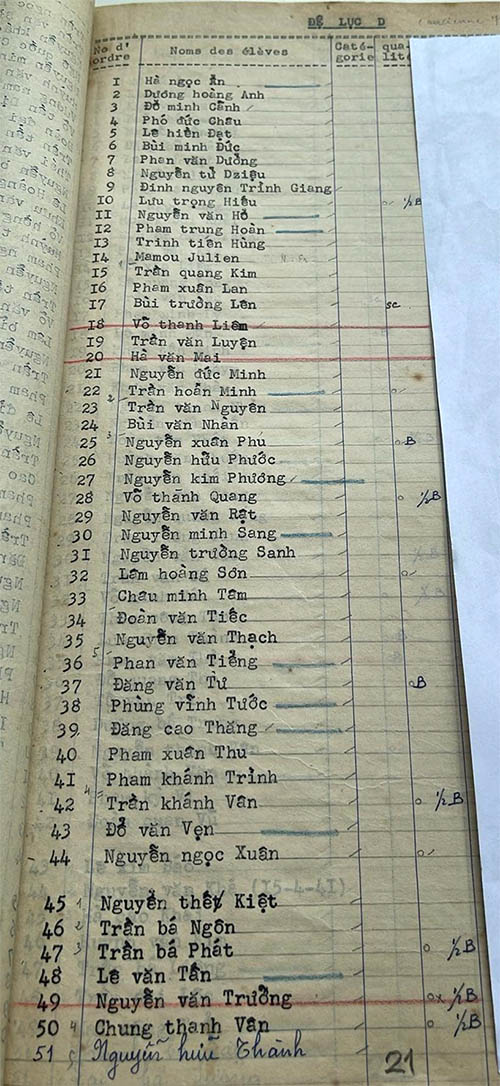 ĐỆ LỤC D
No d'ordre Noms des élèves Caté-gorie qua-lité
1 Hà ngọc Ẩn
2 Dương hoàng Anh
3 Đỗ minh Cảnh
4 Phó đức Châu
5 Lê hiển Đạt
6 Bùi minh Đức
7 Phan văn Dưỡng
8 Nguyễn tử Dziệu
9 Đinh nguyên Trinh Giang
10 Lưu trọng Hiếu ½B
11 Nguyễn văn Hổ
12 Phạm trung Hoàn
13 Trinh tiến Hùng
14 Mamou Julien
15 Trần quang Kim
16 Phạm xuân Lan
17 Bùi trưởng Lên sc
18 Võ thanh Liêm
19 Trần văn Luyện
20 Hà văn Mai
21 Nguyễn đức Minh
22 Trần hoán Minh
23 Trần văn Nguyên
24 Bùi văn Nhàn
25 Nguyễn xuân Phu B
26 Nguyễn hữu Phước
27 Nguyễn kim Phương
28 Võ thành Quang ½B
29 Nguyễn văn Rật
30 Nguyễn minh Sang
31 Nguyễn trưởng Sanh
32 Lâm hoàng Sơn
33 Châu minh Tâm
34 Đoàn văn Tiếc
35 Nguyễn văn Thạch
36 Phan văn Tiểng
37 Đặng văn Tư B
38 Phùng vĩnh Tước
39 Đặng cao Thăng
40 Phạm xuân Thu
41 Phạm khánh Trình
42 Trần khánh Vân ½B
43 Đỗ văn Vẹn
44 Nguyễn ngọc Xuân
45 1 Nguyễn thế Kiệt
46 2 Trần bá Ngôn
47 3 Trần bá Phát ½B
48 Lê văn Tấn
49 Nguyễn văn Trưởng x ½B
50 4 Chung thanh Vân ½B
51 5 Nguyễn hữu Thành
21